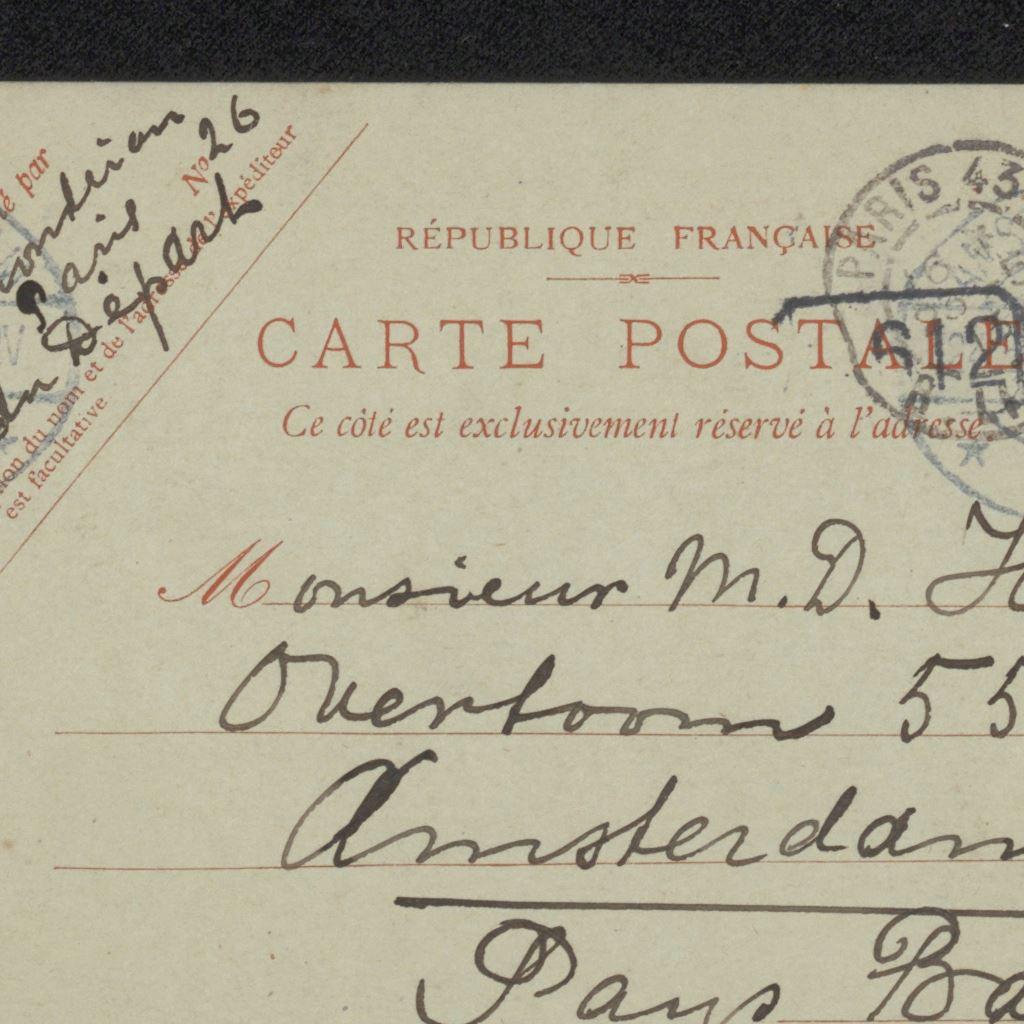 é par
ondrian
Paris
du Départ
N° 26
ion du nom et de l'adresse de l'expéditeur
est facultative
RÉPUBLIQUE FRANÇAISE
CARTE POSTALE
Ce côté est exclusivement réservé à l'adresse.
PARIS 43
S12
Monsieur M. D. H
Overtoom 55
Amsterdam
Pays Ba